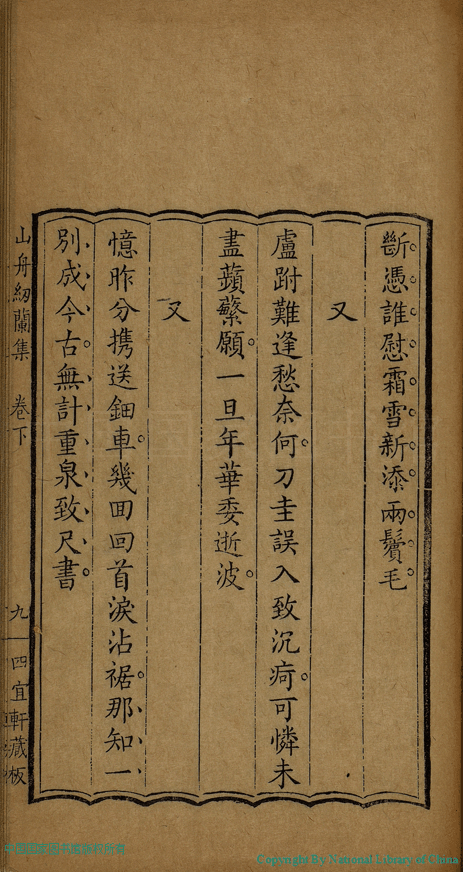 斷憑誰慰霜雪新添兩鬢毛
又
盧跗難逢愁奈何刀圭誤入致沉疴可憐未
盡蘋蘩願一旦年華委逝波
又
憶昨分携送鈿車幾回回首淚沾裾那知一
別成今古無計重泉致尺書
山舟紉蘭集 卷下 九 四宜軒藏板
Copyright By National Library of China